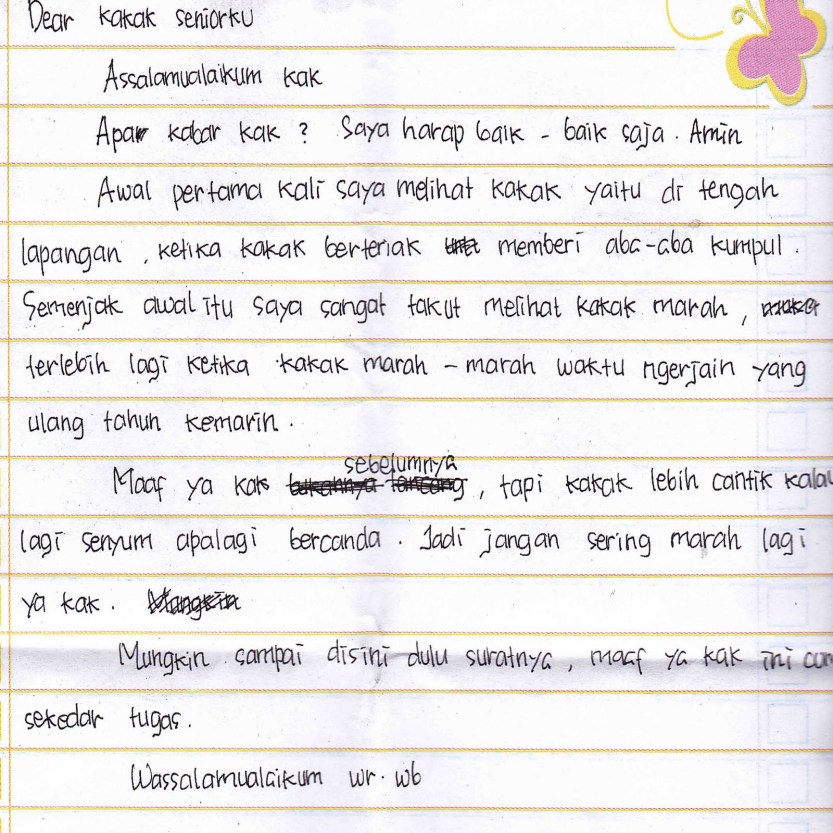 Dear kakak seniorku
Assalamualaikum kak
Apa kabar kak ? Saya harap baik - baik saja . Amin
Awal pertama kali saya melihat kakak yaitu di tengah
lapangan , ketika kakak berteriak memberi aba-aba kumpul .
Semenjak awal itu saya sangat takut melihat kakak marah ,
terlebih lagi ketika kakak marah - marah waktu ngerjain yang
ulang tahun kemarin .
Maaf ya kak sebelumnya , tapi kakak lebih cantik kalau
lagi senyum apalagi bercanda . Jadi jangan sering marah lagi
ya kak .
Mungkin sampai disini dulu suratnya , maaf ya kak ini
sekedar tugas .
Wassalamualaikum wr . wb